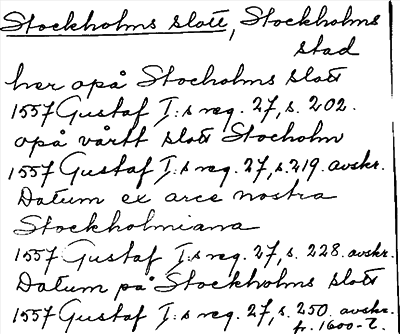 Stockholms slott, Stockholms
stad
her opå Stocholms slott
1557 Gustaf I:s reg. 27, s. 202.
opå vårtt slott Stocholm
1557 Gustaf I:s reg. 27, s. 219. avskr.
Datum ex arce nostra
Stockholmiana
1557 Gustaf I:s reg. 27, s. 228. avskr.
Datum på Stockholms slott
1557 Gustaf I:s reg. 27, s. 250. avskr.
fr. 1600-t.